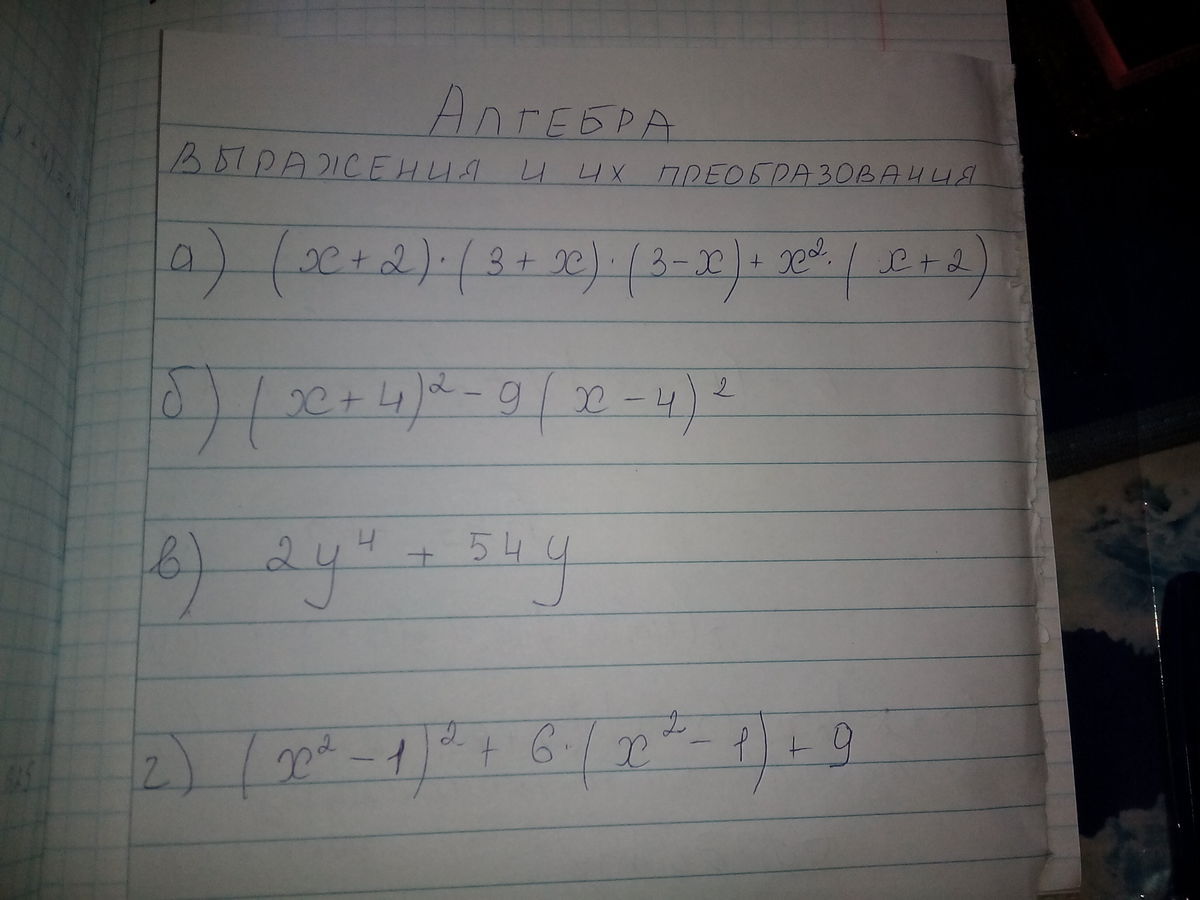 АЛГЕБРА
ВЫРАЖЕНИЯ И ИХ ПРЕОБРАЗОВАНИЯ
а) (x+2)·(3+x)·(3-x)+x²·(x+2)
б) (x+4)²-9(x-4)²
в) 2y⁴+54y
г) (x²-1)²+6·(x²-1)+9